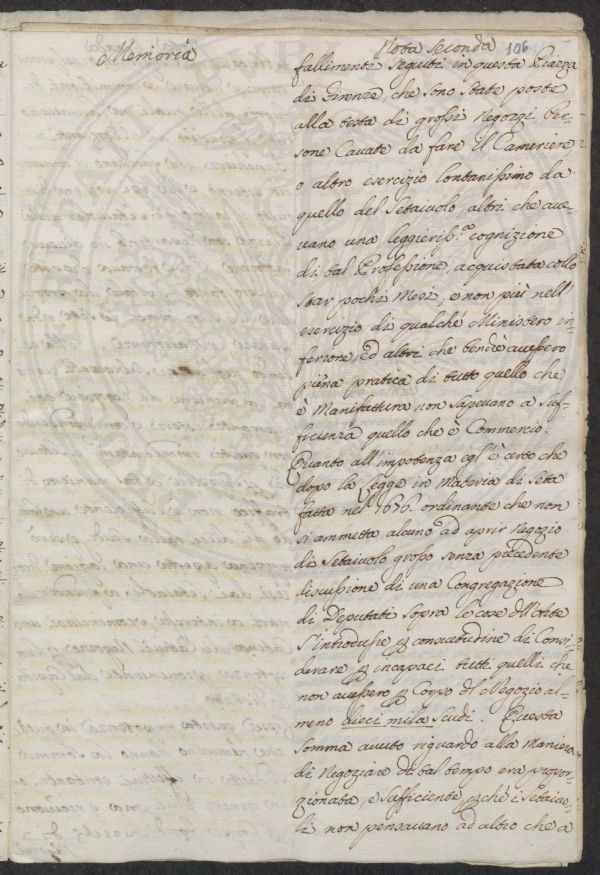 Memoria
Nota seconda 106
fallimenti seguiti in questa Piazza
di Firenze, che sono state poste
alla testa di grossi Negozzi Per-
sone Cavate da fare il Cameriere
o altro esercizio lontanissimo da
quello del Setaiuolo, altri che ave-
vano una leggieriss.ª cognizione
di tal Professione, acquistata collo
star pochi Mesi, e non più nell'
esercizio di qualche Ministero in-
feriore, ed altri che bendè avessero
piena pratica di tutto quello che
è Manifattura non sapevano a suf-
ficienza quello che è Commercio.
Quanto all'impotenza egl'è certo che
dopo la Legge in Materia di Seta
fatta nel 1676. ordinante che non
si ammetta alcuno ad aprir Negozio
di Setaiuolo grosso senza precedente
discussione di una Congregazione
di Deputati sopra le cose dell'Arte
s'introdusse p consuetudine di Consi-
derare p incapaci tutti quelli che
non avessero p Corpo dl Negozio al-
meno dieci mila Scudi. Questa
somma avuto riguardo alla Maniera
di Negoziare di tal tempo era propor-
zionata, e sufficiente pchè i Setaiuo-
li non pensavano ad altro che a